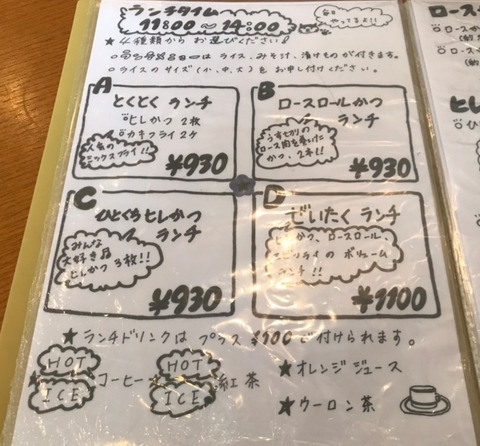 ランチタイム
11:00〜14:00
毎日
やってるよ!!
★4種類から お選びください!
はライス、みそ汁、漬けものが付きます。
○ライスのサイズ(小、中、大)も お申し付けください。
A
とくとく ランチ
ヒレかつ 2枚
カキフライ 2ヶ
人気の
ミックスフライ!!
¥930
B
ロースロールかつ
ランチ
うす切りの
ロース肉を巻いた
かつ、2本!!
¥930
C
ひとくちヒレかつ
ランチ
みんな
大好き
ヒレかつ 3枚!!
¥930
D
ぜいたく ランチ
かつ、ロースロール、
フライの ボリューム
ランチ!!
¥1100
★ランチドリンクは プラス ¥100で付けられます。
HOT
ICE
コーヒー
HOT
ICE
紅茶
★オレンジジュース
★ウーロン茶
ロース
ロースかつ
ヒレ